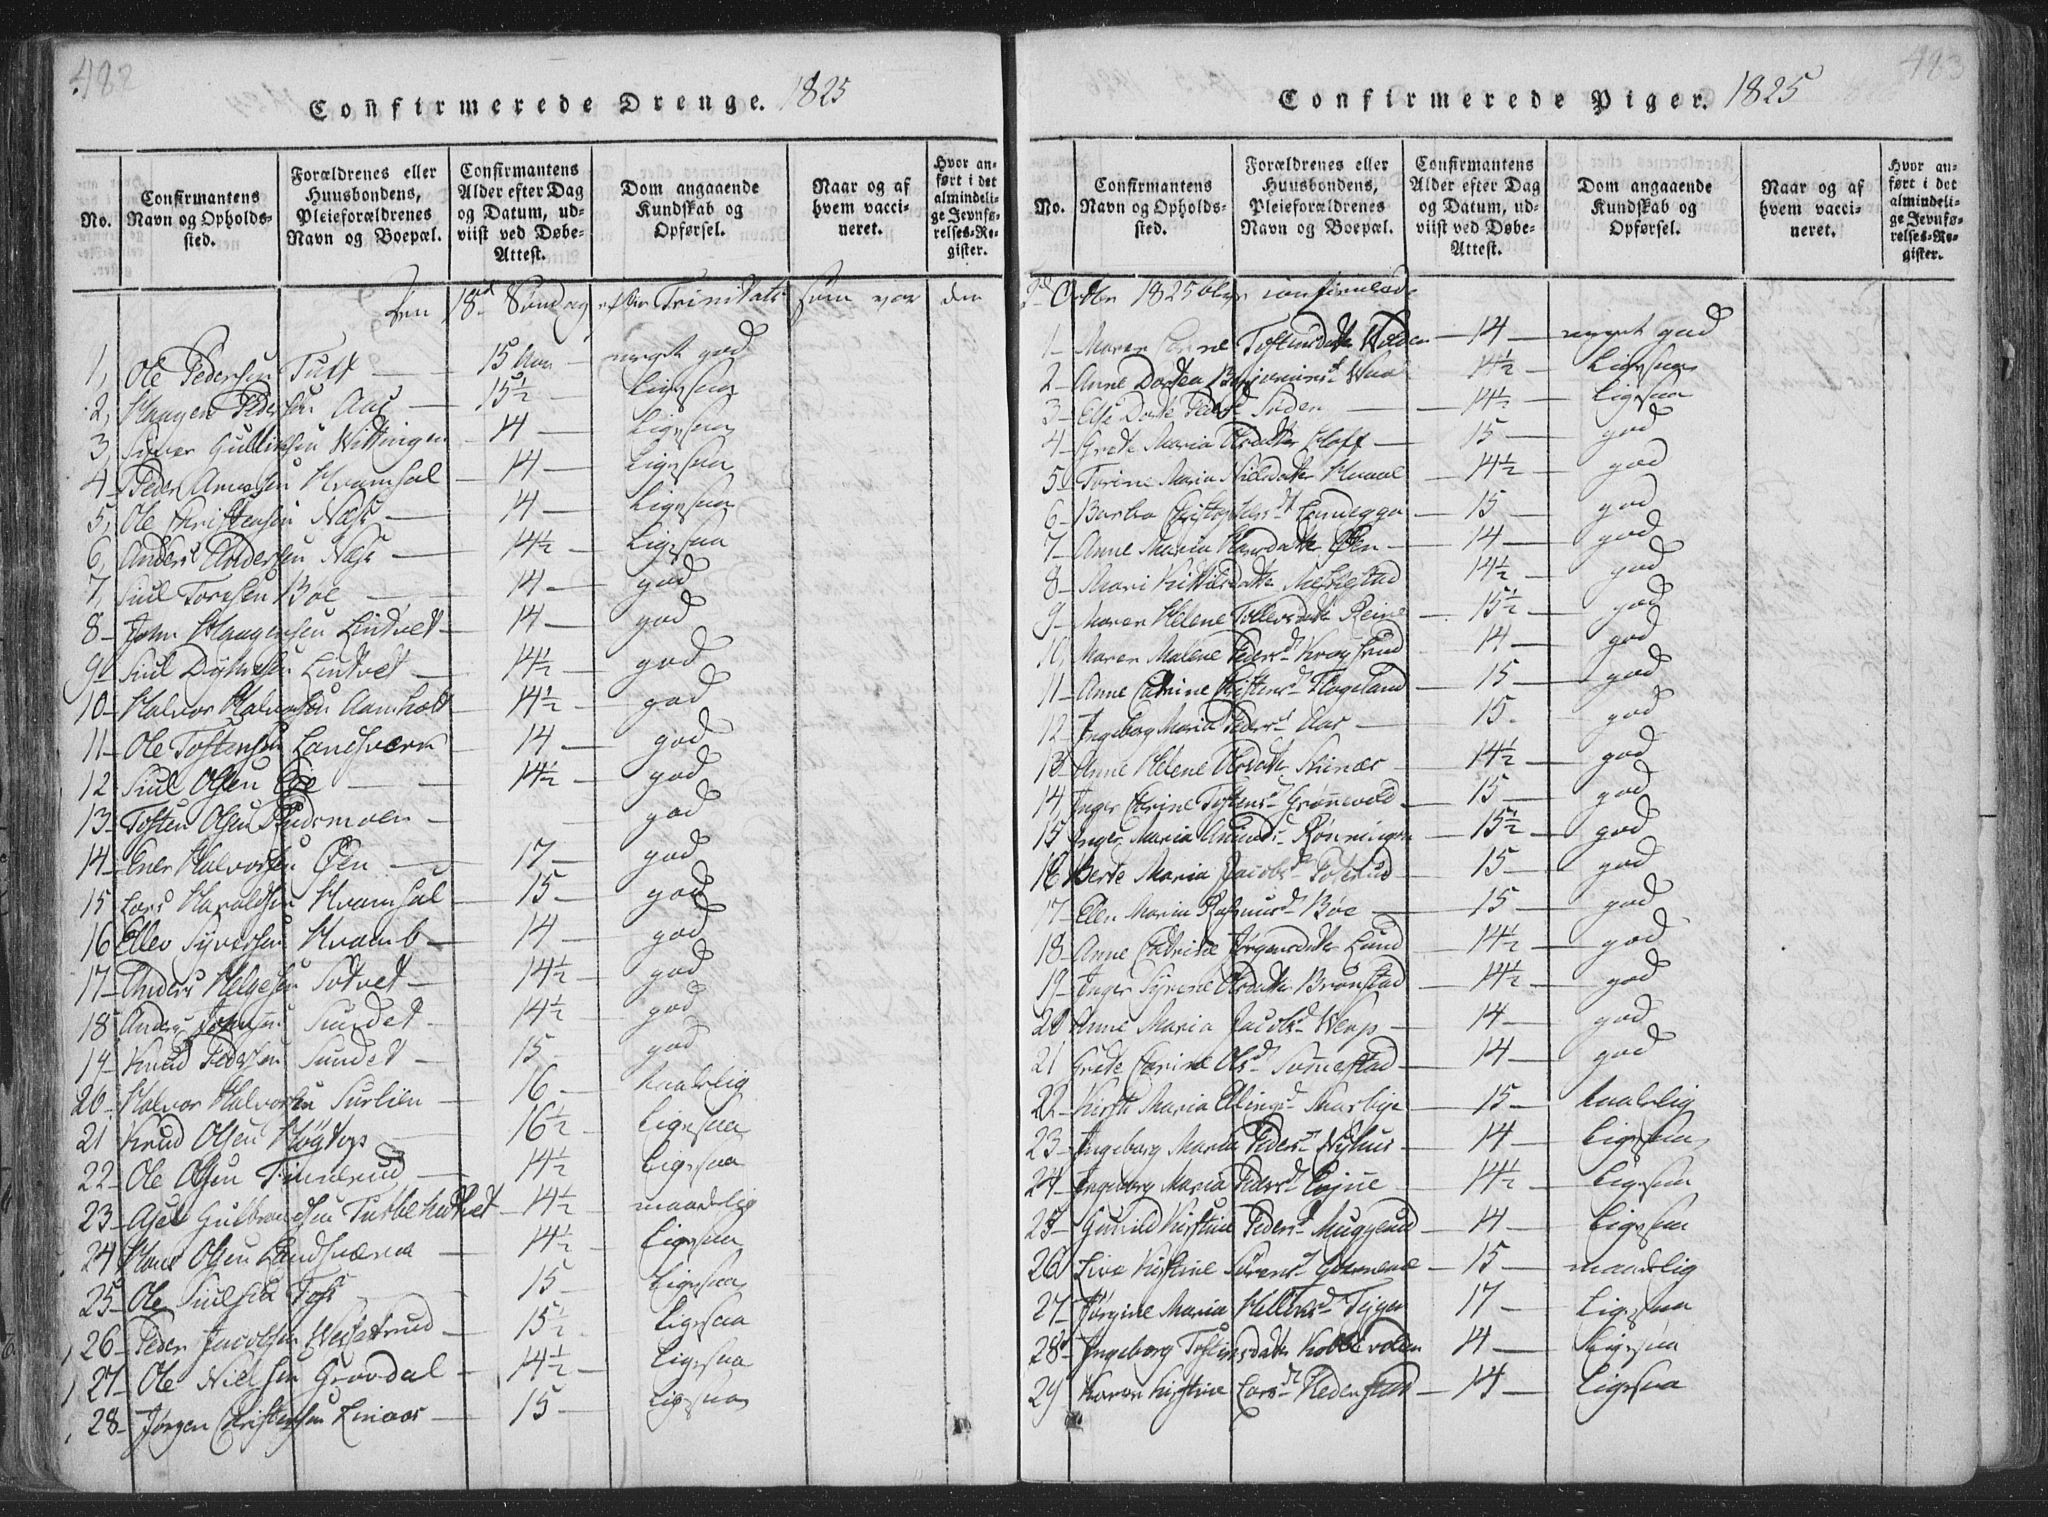 482
Confirmerede Drenge. 1825
No.
Confirmantens Navn og Opholdssted.
Forældrenes eller Huusbondens, Pleieforældrenes Navn og Boepæl.
Confirmantens Alder efter Dag og Datum, udviist ved Døbe-Attest.
Dom angaaende Kundskab og Opførsel.
Naar og af hvem vaccineret.
Hvor anført i det almindelige Jevnførelses-Register.
Den 18de Søndag efter Trinitatis som var den
1, Ole Pedersen Tuft 15 Aar meget god
2, Haagen Pedersen Aas 15½ Ligesaa
3, Siver Gullixsen Wittingen 14 Ligesaa
4 Peder Amesen Kramsal 14 Ligesaa
5, Ole Christensen Næss 14 Ligesaa
6, Anders Andersen Næss 14½ Ligesaa
7, Siul Toresen Bøe 14 god
8 John Haagensen Lindvet 14 god
9 Siul Lindvet 14½ god
10 Halvor Halvorsen Aamholt 14½ god
11 Ole Tostensen Landsværk 14 god
12 Siul Olsen Øie 14½ god
13 Tosten Olsen Rudsmoen god
14 Ener Halvorsen Øen 17 god
15 Lars Haraldsen Kramsal 15 god
16 Ellev Syversen Kramb 14 god
17 Anders Helgesen Sotvet 14½ god
18 Anders Johnsen Sundet 14½ god
19 Knud Pedersen Sundet 15 god
20 Halvor Halvorsen Surlien 16 taalelig
21 Knud Olsen 16½ Ligesaa
22 Ole Olsen Timmerud 14½ Ligesaa
23 Gulbrandsen 14½ maadelig
24 Hans Olsen Landsværk 14½ Ligesaa
25 Ole Siulsen Foss 15 Ligesaa
26 Peder Jacobsen 15½ Ligesaa
27 Ole Nielsen Grovdal 14½ Ligesaa
28 Jørgen Christensen Linaas 15 Ligesaa
483
Confirmerede Piger. 1825
No.
Confirmantens Navn og Opholdssted.
Forældrenes eller Huusbondens, Pleieforældrenes Navn og Boepæl.
Confirmantens Alder efter Dag og Datum, udviist ved Døbe-Attest.
Dom angaaende Kundskab og Opførsel.
Naar og af hvem vaccineret.
Hvor anført i det almindelige Jevnførelses-Register.
2d Octbr 1825 blev confirmerede
1 Maren Tostensdatter Wolden 14 meget god
2 Anne Dortea 14½ Ligesaa
3 Else Dorte Peders Soden 14½ Ligesaa
4 Grete Maria Olsdatter Hoff 15 god
5 Torine Maria Nielsdatter Hvaal 14½ god
6 Barbo Christophers Lundegga 15 god
7 Anne Maria Hansdatter Øen 14 god
8 Mari Kittilsdatter Mellestad 14½ god
9 Maren Helene Tollevsdatter Reine 15½ god
10, Maren Malene Peders Kragsrud 14 god
11 Anne Catrine Christens Flageland 15 god
12 Ingeborg Maria Peders Aas 15 god
13 Anne Helene Olsdatter Skinæs 14½ god
14 Inger Catrine Tostens Grønnevold 15 god
15 Inger Maria Amunds Rønningen 15½ god
16 Berte Maria Jacobs 15 god
17 Elen Maria Rasmus Bøe 15 god
18 Anne Catrine Jørgensdatter Lund 14½ god
19 Inger Syrene Olsdatter Brønstad 14½ god
20 Anne Maria Jacobs 14 god
21 Grete Catrine Ols Somestad 14 god
22 Kirsti Maria Elings Skarbye 15 taalelig
23 Ingeborg Maria Peders Nyhus 14 Ligesaa
24 Ingeborg Maria Peders 14½ Ligesaa
25 Gunild Kirstine Peders Muggerud 14 Ligesaa
26 Live Kirstine Sørens 15 maadelig
27 Jørgine Maria Tejgen 17 Ligesaa
28 Ingeborg Tostensdatter Kobbervolden 14 Ligesaa
29 Karen Kirstine Lars Hedenstad 14 Ligesaa